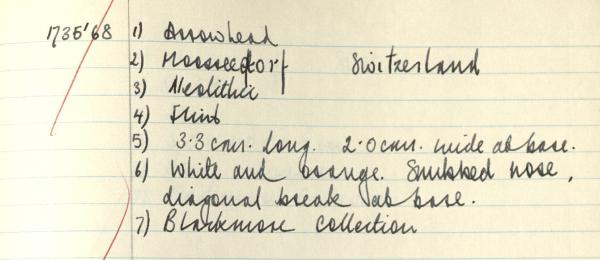 1735'68 1) Arrowhead
2) Moosseedorf Switzerland
3) Neolithic
4) Flint
5) 3.3 cms. long. 2.0 cms. wide at base.
6) White and orange. Snubbed nose,
diagonal break at base.
7) Blackmore Collection